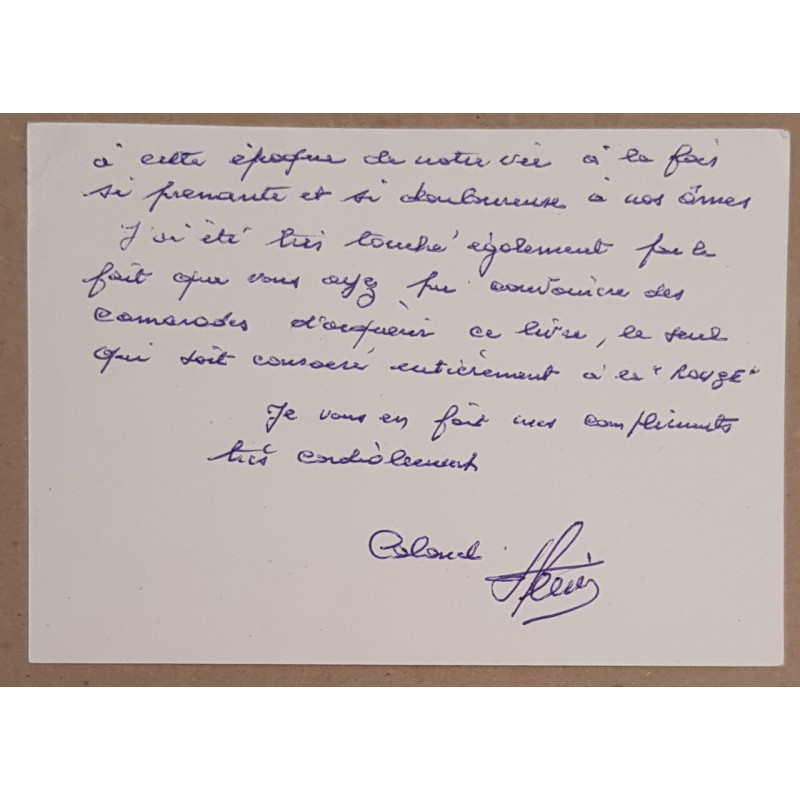 à cette époque de notre vie à la fois
si prenante et si douloureuse à nos âmes
J'ai été très touché également par le
fait que vous ayez pu convaincre des
camarades d'acquérir ce livre, le seul
qui soit consacré entièrement à la "ROUGE"
Je vous en fait mes compliments
très cordialement
Colonel